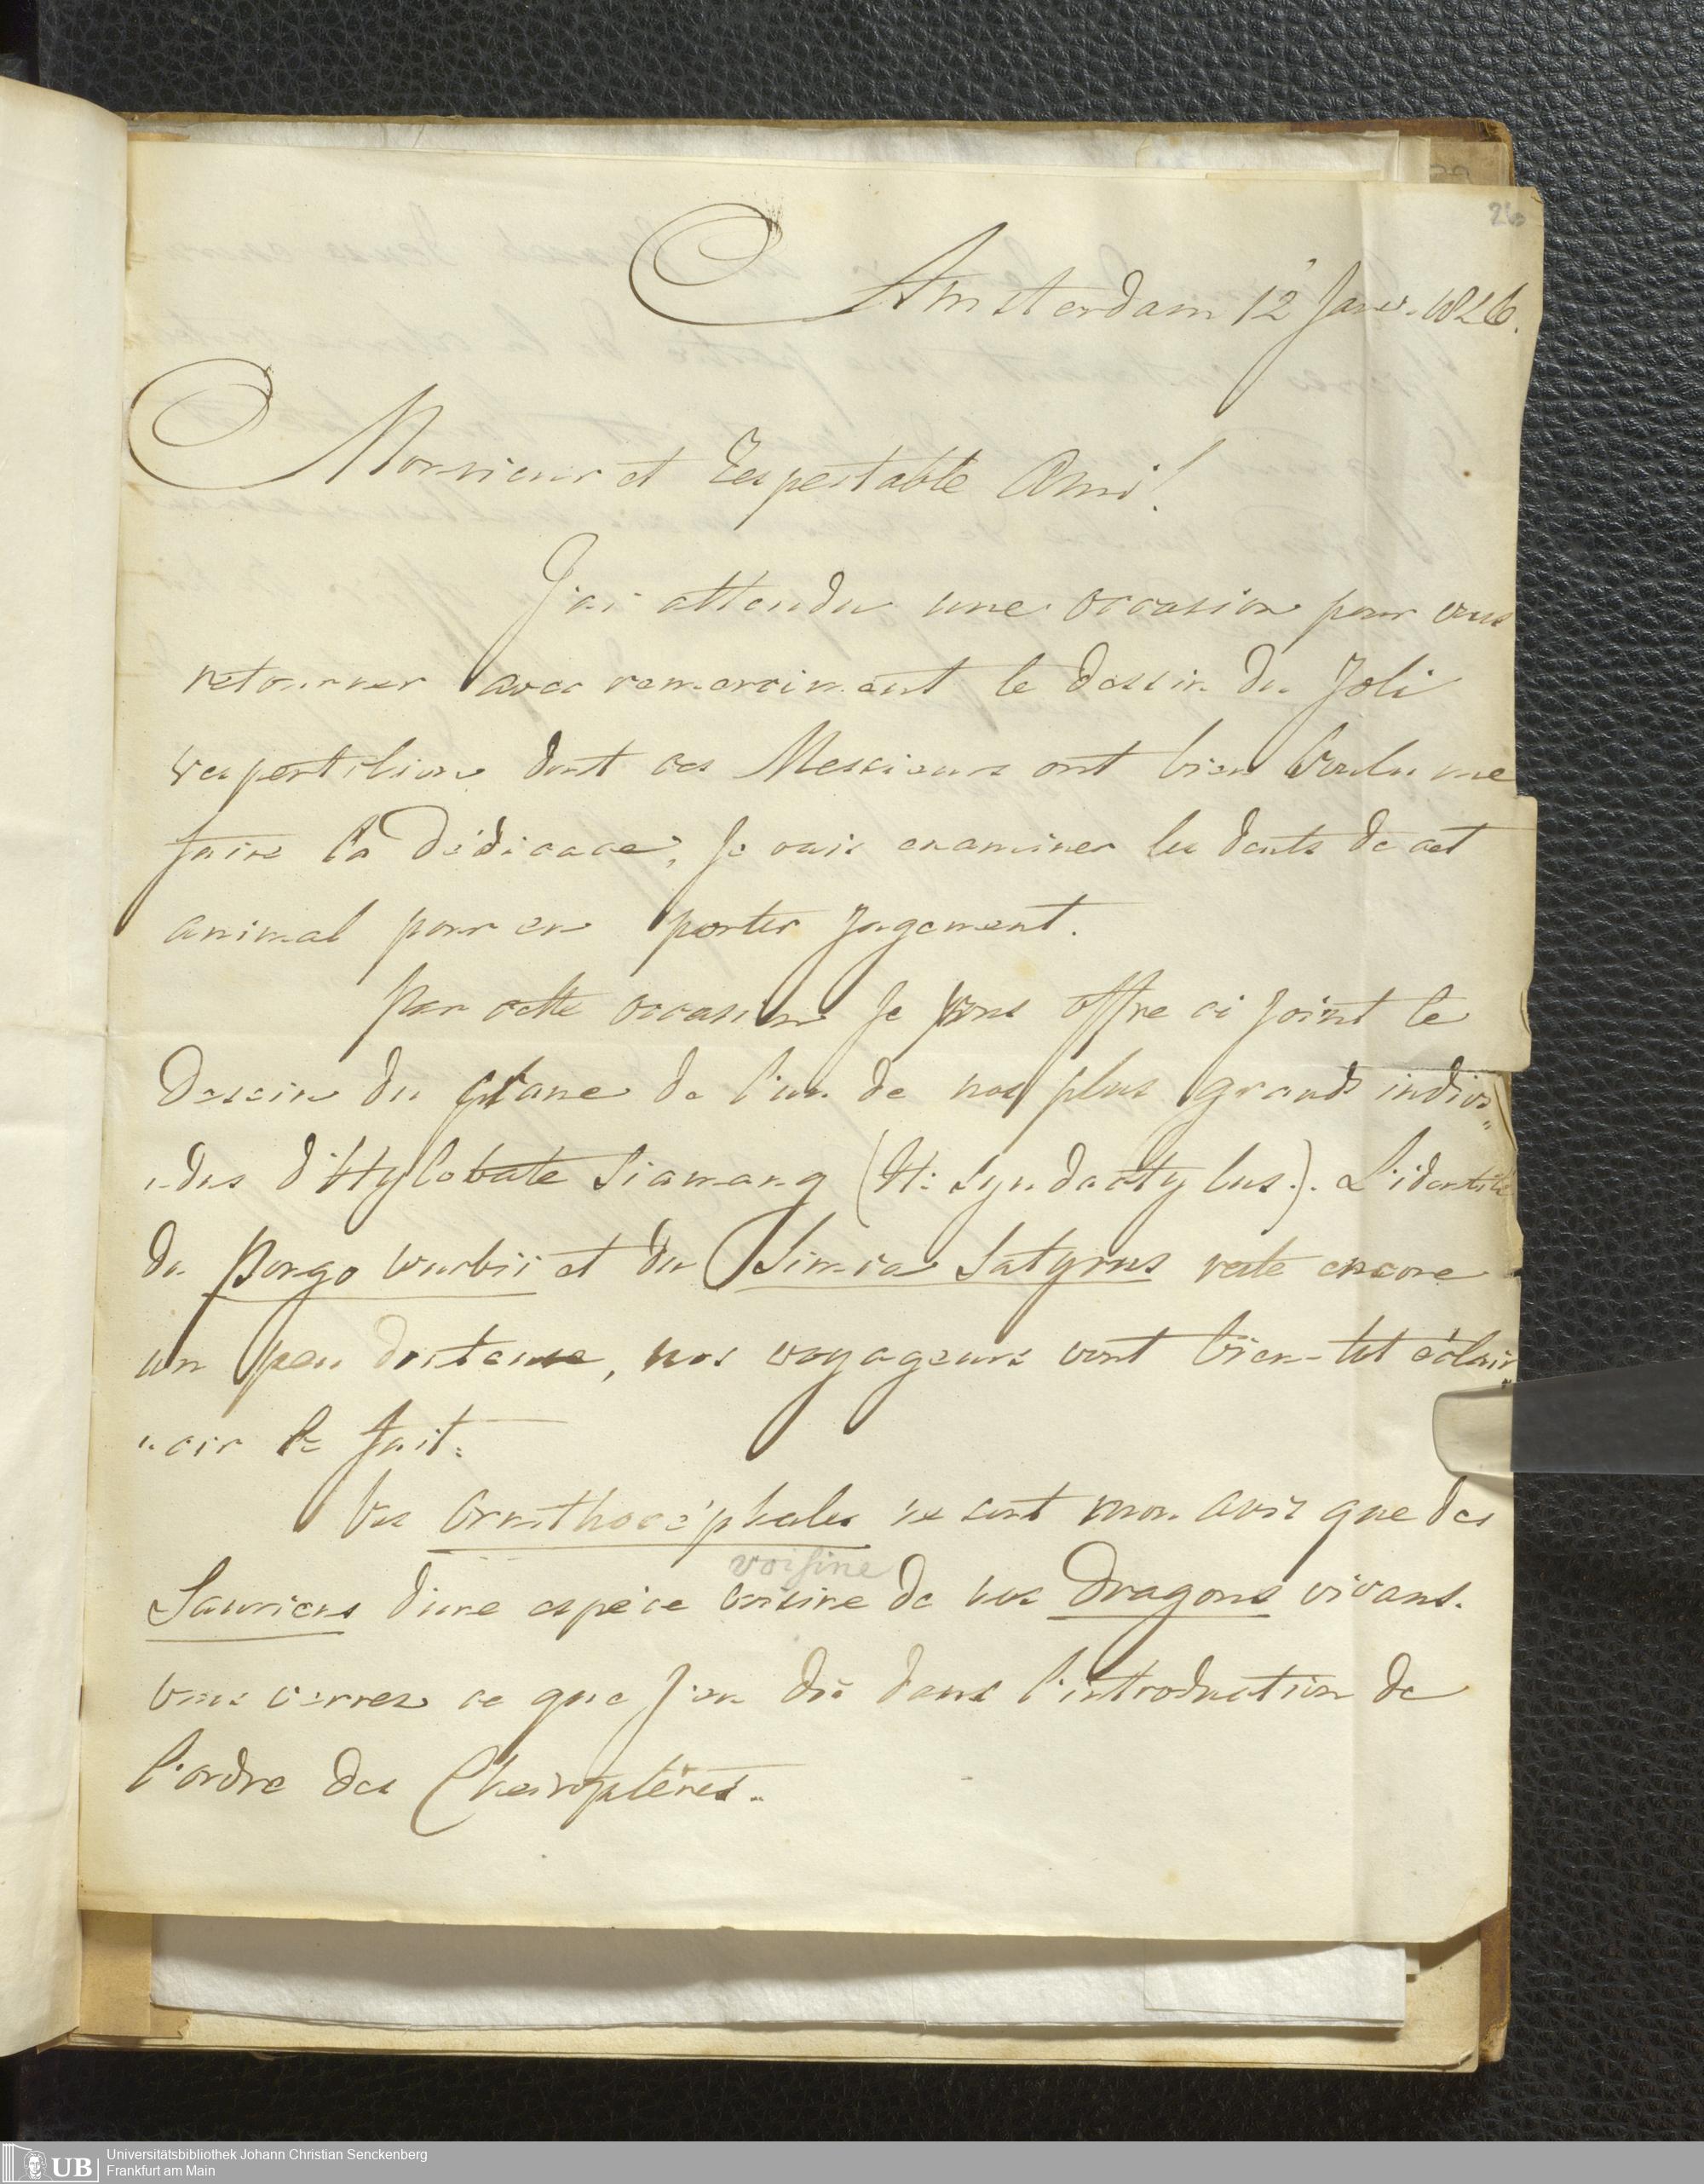 26
Amsterdam 12 Janv. 1826.
Monsieur et respectable Ami!
J'ai attendu une occasion pour vous
retourner avec remerciment le dessin du joli
vespertilion dont ces Messieurs ont bien voulu me
faire la dédicace, je vais examiner les dents de cet
animal pour en porter jugement.
Par cette occasion je vous offre ci joint le
dessin du crane de l'un de nos plus grands indivi„
„dus d'Hylobate Siamang (H: Syndactylus.). L'identité
du Pongo Wurbii et du Simia Satyrus reste encore
un peu douteuse, nos voyageurs vont bien-tot éclair„
„cir le fait.
Vos Ornithocéphales ne sont mon avis que des
voisine
Sauriens d'une espèce voisine de nos Dragons vivans.
vous verrez ce que j'en dis dans l'introduction de
l'ordre des Cheiroptères.
UB
Universitätsbibliothek Johann Christian Senckenberg
Frankfurt am Main